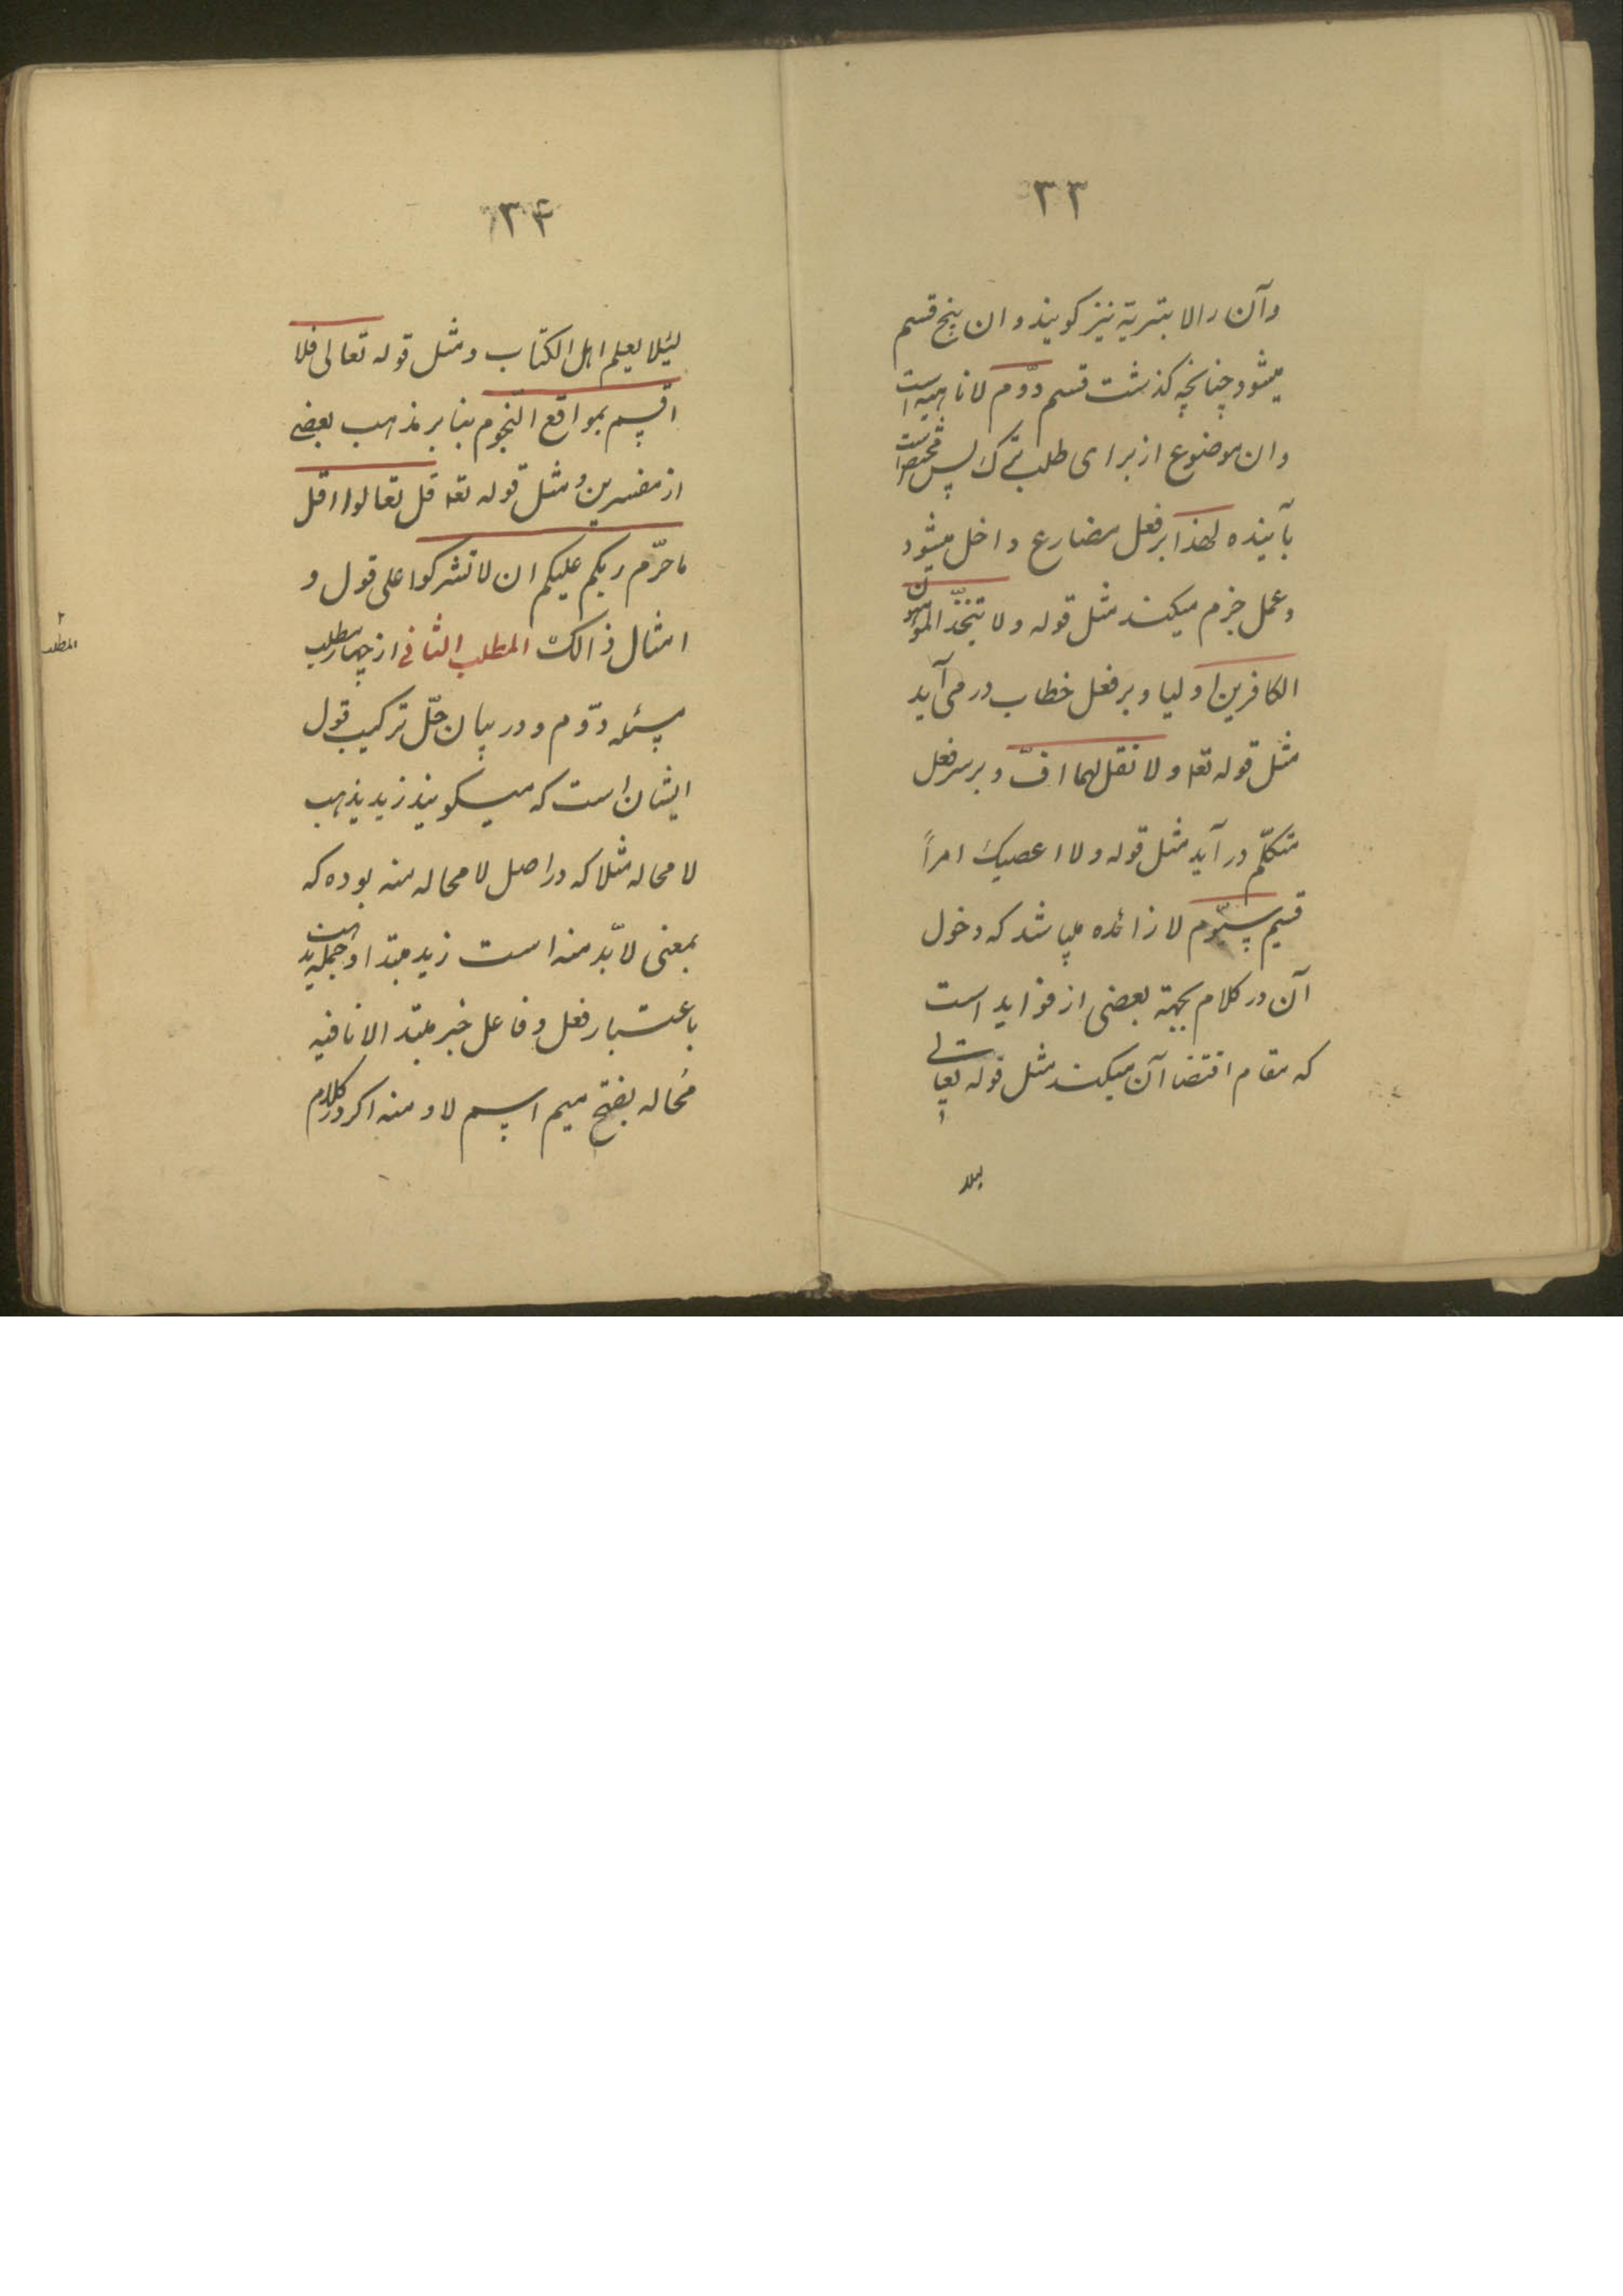 ۳۳
وآن را لا بتبریة نیز کویند و ان پنج قسم
میشود چنانچه کذشت قسم دوّم لا ناهیه است
و ان موضوع از برای طلب ترک پس مختص است
بآینده لهذا بر فعل مضارع داخل میشود
و عمل جزم میکند مثل قوله و لا تتخذ المؤمنون
الکافرین اولیا و بر فعل خطاب در می آید
مثل قوله تعا و لا تقل لهما افّ و بر سر فعل
متکلّم در آید مثل قوله و لا اعصیک امراً
قسم سیّوم لا زائده میباشد که دخول
آن در کلام بجهة بعضی از فواید است
که مقام اقتضا آن میکند مثل قوله تعالی
لیلا
۳۴
لیئلا یعلم اهل الکتاب و مثل قوله تعالی فلا
اقسم بمواقع النّجوم بنا بر مذهب بعضی
از مفسرین و مثل قوله تعا قل تعالوا اقل
ما حرّم ربکم علیکم ان لا تشرکوا علی قول و
امثال ذالک المطلب الثانی از چهار مطلب
مسئله دوّم و در بیان حلّ ترکیب قول
ایشان است که میکویند زید یذهب
لا محاله مثلا که در اصل لا محاله منه بوده که
بمعنی لا بّد منه است زید مبتدا و جمله یذهب
باعتبار فعل و فاعل خبر مبتدا لا نافیه
مَحاله بفتح میم اسم لا و منه اکر در کلام
المطلب ۲